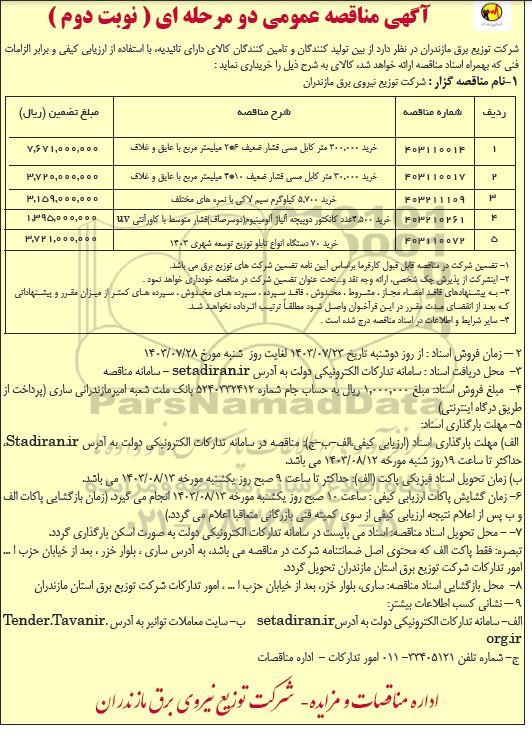 آگهی مناقصه عمومی دو مرحله ای ( نوبت دوم )
شرکت توزیع برق مازندران در نظر دارد از بین تولید کنندگان و تامین کنندگان کالای دارای تائیدیه، با استفاده از ارزیابی کیفی و برابر الزامات
فنی که بهمراه اسناد مناقصه ارائه خواهد شد، کالای به شرح ذیل را خریداری نماید :
۱-نام مناقصه گزار : شرکت توزیع نیروی برق مازندران
ردیف شماره مناقصه شرح مناقصه مبلغ تضمین (ریال)
۱ ۴۰۳۱۱۰۰۱۴ خرید ۳۰۰,۰۰۰ متر کابل مسی فشار ضعیف ۶*۲ میلیمتر مربع با عایق و غلاف ۷,۶۷۱,۰۰۰,۰۰۰
۲ ۴۰۳۱۱۰۰۱۷ خرید ۳۰,۰۰۰ متر کابل مسی فشار ضعیف ۱۰*۴ میلیمتر مربع با عایق و غلاف ۳,۷۲۰,۰۰۰,۰۰۰
۳ ۴۰۳۲۱۱۱۰۹ خرید ۵,۷۰۰ کیلوگرم سیم لاکی با نمره های مختلف ۳,۱۵۹,۰۰۰,۰۰۰
۴ ۴۰۳۲۱۰۲۶۱ خرید ۳,۵۰۰عدد کانکتور دوپیچه آلیاژ آلومینیوم(دوسرصاف)فشار متوسط با کاورآنتی uv ۱,۳۹۵,۰۰۰,۰۰۰
۵ ۴۰۳۱۱۰۰۷۲ خرید ۷۰ دستگاه انواع تابلو توزیع توسعه شهری ۱۴۰۳ ۳,۷۲۱,۰۰۰,۰۰۰
۱- تضمین شرکت در مناقصه قابل قبول کارفرما براساس آیین نامه تضمین شرکت های توزیع برق می باشد.
۲- اینشرکت از پذیرش چک شخصی، ارائه وجه نقد و... تحت عنوان تضمین شرکت در مناقصه خودداری خواهد نمود .
۳- به پیشنهادهای فاقد امضاء مجاز ، مشروط ، مخدوش ، فاقد سپرده ، سپرده های مخدوش ، سپرده های کمتر از میزان مقرر و پیشنهاداتی
که بعد از انقضای مدت مقرر در این فرآخوان واصل شود مطلقاً ترتیب اثرداده نخواهد شد.
۴- سایر شرایط و اطلاعات در اسناد مناقصه درج شده است .
۲ – زمان فروش اسناد : از روز دوشنبه تاریخ ۱۴۰۳/۰۷/۲۳ لغایت روز شنبه مورخ ۱۴۰۳/۰۷/۲۸
۳- محل دریافت اسناد : سامانه تدارکات الکترونیکی دولت به آدرس setadiran.ir – سامانه مناقصه
۴- مبلغ فروش اسناد: مبلغ ۱,۰۰۰,۰۰۰ ریال به حساب جام شماره ۵۲۴۰۳۳۲۴۱۲ بانک ملت شعبه امیرمازندرانی ساری (پرداخت از
طریق درگاه اینترنتی)
۵- مهلت بارگذاری اسناد:
الف) مهلت بارگذاری اسناد (ارزیابی کیفی،الف-ب-ج): مناقصه در سامانه تدارکات الکترونیکی دولت به آدرس Stadiran.ir،
حداکثر تا ساعت ۱۹روز شنبه مورخه ۱۴۰۳/۰۸/۱۲ می باشد.
ب) زمان تحویل اسناد فیزیکی پاکت (الف): حداکثر تا ساعت ۹ صبح روز یکشنبه مورخه ۱۴۰۳/۰۸/۱۳ می باشد.
۶- زمان گشایش پاکات ارزیابی کیفی : ساعت ۱۰ صبح روز یکشنبه مورخه ۱۴۰۳/۰۸/۱۳ انجام می گیرد. (زمان بازگشایی پاکات الف
و ب پس از اعلام نتیجه ارزیابی کیفی از سوی کمیته فنی بازرگانی متعاقبا اعلام می گردد.)
۷- – محل تحویل اسناد مناقصه: اسناد می بایست در سامانه تدارکات الکترونیکی دولت به صورت اسکن بارگذاری گردد.
تبصره: فقط پاکت الف که محتوی اصل ضمانتنامه شرکت در مناقصه می باشد، به آدرس ساری ، بلوار خزر ، بعد از خیابان حزب ا ...
امور تدارکات شرکت توزیع برق استان مازندران تحویل گردد.
۸- محل بازگشایی اسناد مناقصه: ساری، بلوار خزر، بعد از خیابان حزب ا ... ، امور تدارکات شرکت توزیع برق استان مازندران
۹ – نشانی کسب اطلاعات بیشتر:
الف- سامانه تدارکات الکترونیکی دولت به آدرس setadiran.ir ب- سایت معاملات توانیر به آدرس Tender.Tavanir.
org.ir
ج- شماره تلفن ۳۳۴۰۵۱۲۱- ۰۱۱ امور تدارکات – اداره مناقصات
اداره مناقصات و مزایده- شرکت توزیع نیروی برق مازندران
ParsNamadData